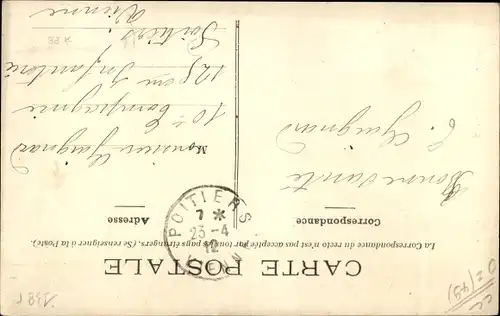 CARTE POSTALE
La Correspondance du recto n'est pas acceptée par tous les pays étrangers. (Se renseigner à la Poste).
Correspondance
Bonne santé
E. Guignard
Adresse
Monsieur Guignard
10e Compagnie
125em Infanterie
Poitiers
Vienne
POITIERS
7 *
23-4
12
VIENNE